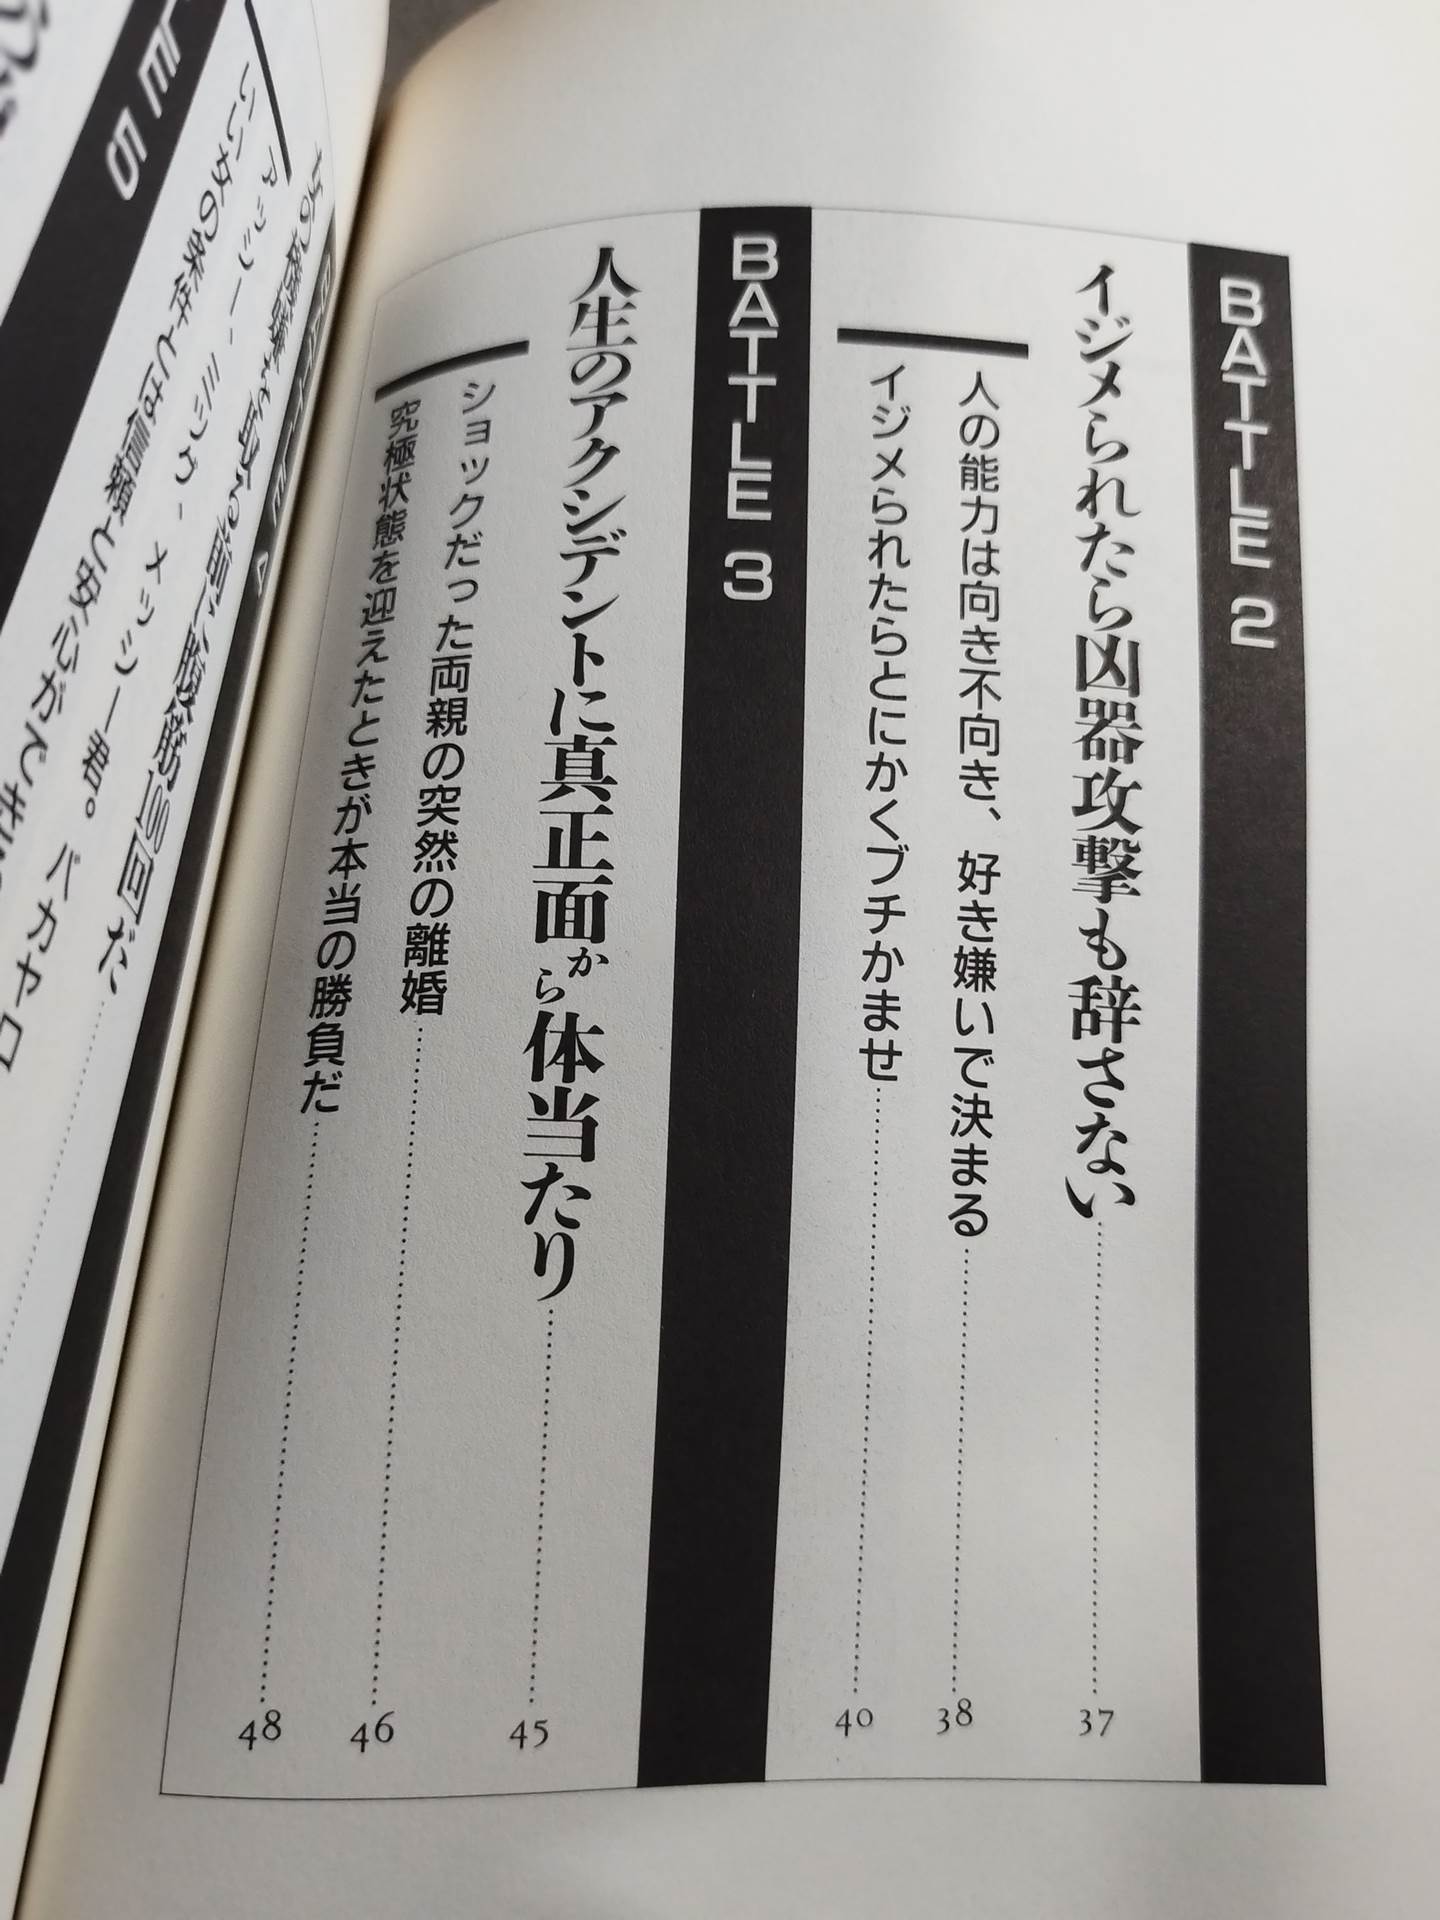 BATTLE 2
イジメられたら凶器攻撃も辞さない……37
人の能力は向き不向き、好き嫌いで決まる……38
イジメられたらとにかくブチかませ……40
BATTLE 3
人生のアクシデントに真正面から体当たり……45
ショックだった両親の突然の離婚……46
究極状態を迎えたときが本当の勝負だ……48
腹筋100回だ……
アッシー、ミツグ、メッシー君。バカヤロ
いい女の条件とは信頼と安心ができ
LE 5